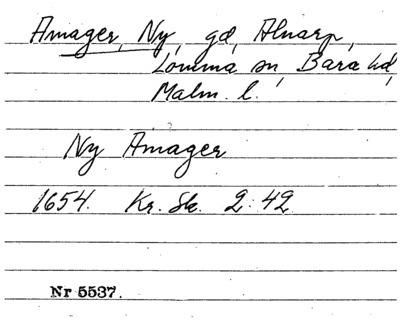 Amager, Ny, gd, Alnarp,
Lomma sn, Bara hd,
Malm. l.
Ny Amager
1654. Kr. Sk. 2:42
Nr 5537.